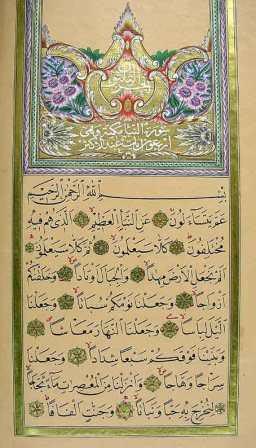 سورة النبا مكية وهي
بِسْمِ اللّٰهِ الرَّحْمٰنِ الرَّحِيمِ
عَمَّ يَتَسَاءَلُونَ عَنِ النَّبَإِ الْعَظِيمِ اَلَّذِي هُمْ فِيهِ
مُخْتَلِفُونَ كَلَّا سَيَعْلَمُونَ ثُمَّ كَلَّا سَيَعْلَمُونَ
اَلَمْ نَجْعَلِ الْاَرْضَ مِهَادًا وَالْجِبَالَ اَوْتَادًا وَخَلَقْنَاكُمْ
اَزْوَاجًا وَجَعَلْنَا نَوْمَكُمْ سُبَاتًا وَجَعَلْنَا
الَّيْلَ لِبَاسًا وَجَعَلْنَا النَّهَارَ مَعَاشًا
وَبَنَيْنَا فَوْقَكُمْ سَبْعًا شِدَادًا وَجَعَلْنَا
سِرَاجًا وَهَّاجًا وَاَنْزَلْنَا مِنَ الْمُعْصِرَاتِ مَاءً ثَجَّاجًا
لِنُخْرِجَ بِهِ حَبًّا وَنَبَاتًا وَجَنَّاتٍ اَلْفَافًا